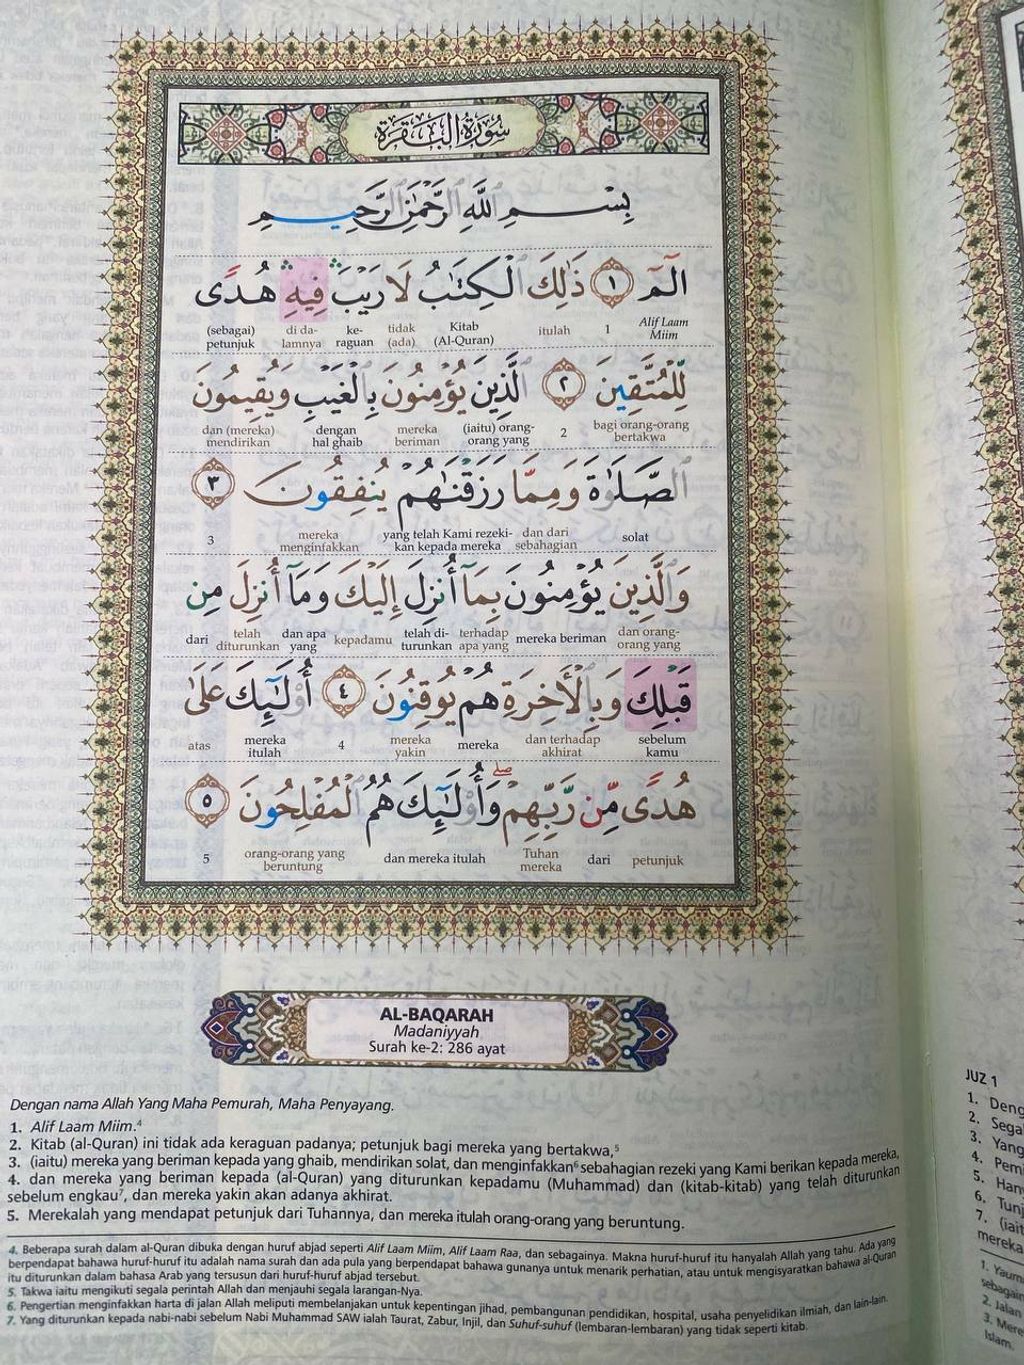 سُورَةُ البَقَرَةِ
بِسْمِ ٱللَّهِ ٱلرَّحْمَٰنِ ٱلرَّحِيمِ
الٓمٓ ١ ذَٰلِكَ ٱلْكِتَٰبُ لَا رَيْبَ ۛ فِيهِ ۛ هُدًى
Alif Laam Miim 1 itulah Kitab (Al-Quran) tidak (ada) ke-raguan di da-lamnya (sebagai) petunjuk
لِّلْمُتَّقِينَ ٢ ٱلَّذِينَ يُؤْمِنُونَ بِٱلْغَيْبِ وَيُقِيمُونَ
bagi orang-orang bertakwa 2 (iaitu) orang-orang yang mereka beriman dengan hal ghaib dan (mereka) mendirikan
ٱلصَّلَوٰةَ وَمِمَّا رَزَقْنَٰهُمْ يُنفِقُونَ ٣
solat dan dari sebahagian yang telah Kami rezeki-kan kepada mereka mereka menginfakkan 3
وَٱلَّذِينَ يُؤْمِنُونَ بِمَآ أُنزِلَ إِلَيْكَ وَمَآ أُنزِلَ مِن
dan orang-orang yang mereka beriman terhadap apa yang telah di-turunkan kepadamu dan apa yang telah diturunkan dari
قَبْلِكَ وَبِٱلْأَخِرَةِ هُمْ يُوقِنُونَ ٤ أُو۟لَٰٓئِكَ عَلَىٰ
sebelum kamu dan terhadap akhirat mereka mereka yakin 4 mereka itulah atas
هُدًى مِّن رَّبِّهِمْ ۖ وَأُو۟لَٰٓئِكَ هُمُ ٱلْمُفْلِحُونَ ٥
petunjuk dari Tuhan mereka dan mereka itulah orang-orang yang beruntung 5
AL-BAQARAH
Madaniyyah
Surah ke-2: 286 ayat
Dengan nama Allah Yang Maha Pemurah, Maha Penyayang.
1. Alif Laam Miim.4
2. Kitab (al-Quran) ini tidak ada keraguan padanya; petunjuk bagi mereka yang bertakwa,5
3. (iaitu) mereka yang beriman kepada yang ghaib, mendirikan solat, dan menginfakkan6 sebahagian rezeki yang Kami berikan kepada mereka,
4. dan mereka yang beriman kepada (al-Quran) yang diturunkan kepadamu (Muhammad) dan (kitab-kitab) yang telah diturunkan
sebelum engkau7, dan mereka yakin akan adanya akhirat.
5. Merekalah yang mendapat petunjuk dari Tuhannya, dan mereka itulah orang-orang yang beruntung.
4. Beberapa surah dalam al-Quran dibuka dengan huruf abjad seperti Alif Laam Miim, Alif Laam Raa, dan sebagainya. Makna huruf-huruf itu hanyalah Allah yang tahu. Ada yang
berpendapat bahawa huruf-huruf itu adalah nama surah dan ada pula yang berpendapat bahawa gunanya untuk menarik perhatian, atau untuk mengisyaratkan bahawa al-Quran
itu diturunkan dalam bahasa Arab yang tersusun dari huruf-huruf abjad tersebut.
5. Takwa iaitu mengikuti segala perintah Allah dan menjauhi segala larangan-Nya.
6. Pengertian menginfakkan harta di jalan Allah meliputi membelanjakan untuk kepentingan jihad, pembangunan pendidikan, hospital, usaha penyelidikan ilmiah, dan lain-lain.
7. Yang diturunkan kepada nabi-nabi sebelum Nabi Muhammad SAW ialah Taurat, Zabur, Injil, dan Suhuf-suhuf (lembaran-lembaran) yang tidak seperti kitab.
JUZ 1
1. Deng
2. Sega
3. Yang
4. Pem
5. Han
6. Tunj
7. (iait
mereka
1. Yaum
sebagain
2. Jalan
3. Mere
Islam.